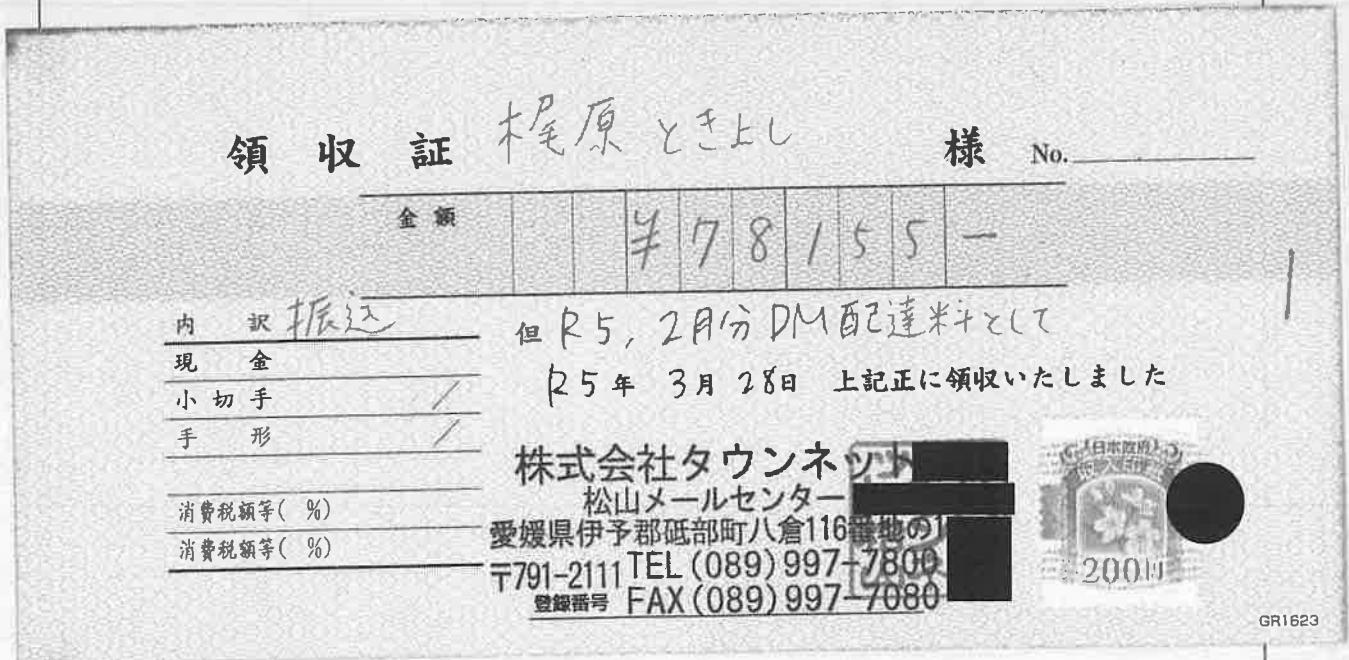 領収証 梶原ときよし 様 No.
金額 ¥78155-
内訳 振込
現金
小切手
手形
消費税額等( %)
消費税額等( %)
但 R5, 2月分DM配達料として
R5年 3月 28日 上記正に領収いたしました
株式会社タウンネット
松山メールセンター
愛媛県伊予郡砥部町八倉116番地の1
〒791-2111 TEL(089)997-7800
登録番号 FAX(089)997-7080
日本政府
200円
GR1623